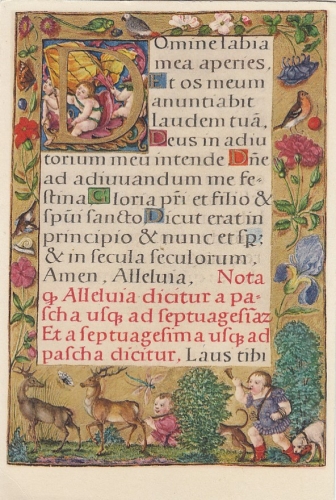 Domine labia
mea aperies,
Et os meum
anuntiabit
laudem tuã,
Deus in adiu
torium meũ intende Dñe
ad adiuuandum me fe-
stina Gloria pr̃i et filio &
spũi sancto Dicut erat in
principio & nunc et sp̃:
& in secula seculorum,
Amen, Alleluia, Nota
ꝙ Alleluia dicitur a pa-
scha usqꝫ ad septuagesi̇az
Et a septuagesima usqꝫ ad
pascha dicitur, Laus tibi